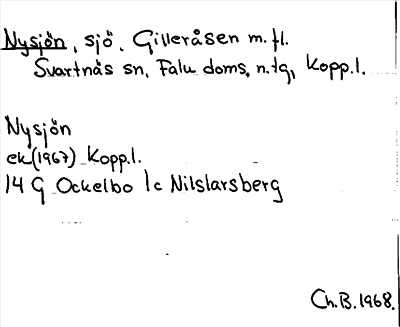 Nysjön, sjö, Gilleråsen m.fl.
Svartnäs sn, Falu doms. n.tg, Kopp.l.
Nysjön
ek(1967) Kopp.l.
14 G Ockelbo 1c Nilslarsberg
Ch.B.1968.